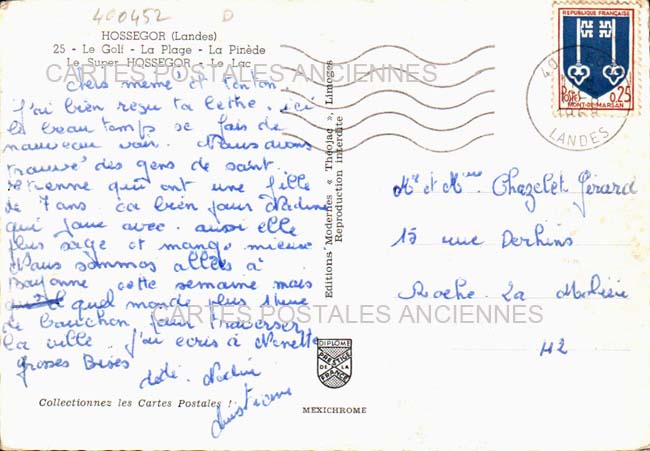 400452 D
HOSSEGOR (Landes)
25 - Le Golf - La Plage - La Pinède
Le Super HOSSEGOR - Le Lac
CARTES POSTALES ANCIENNES
Chers mémé et tonton.
j'ai bien reçu ta lettre. ici
le beau temps se fais de
nouveau voir. Nous avons
trouvé des gens de saint.
etienne qui ont une fille
de 7 ans. ca bien pour Nadine
qui joue avec. aussi elle
plus sage et mange mieuse
Nous sommes allés à
Bayonne cette semaine mais
quel monde plus 1 heure
de bouchon pour traverser
la ville. j'ai ecris à Nénette
grosses Bises
dédé. Nadine
christiane
Collectionnez les Cartes Postales !
Editions Modernes « Théojac », Limoges
Reproduction interdite
DIPLOME
PRESTIGE
DE LA
FRANCE
MEXICHROME
REPUBLIQUE FRANÇAISE
Postes 0,25
MONT-DE-MARSAN
40
LANDES
Mr et Mme Chazelet Gérard
15 rue Derhins
Roche. La Molière
42
CARTES POSTALES ANCIENNES